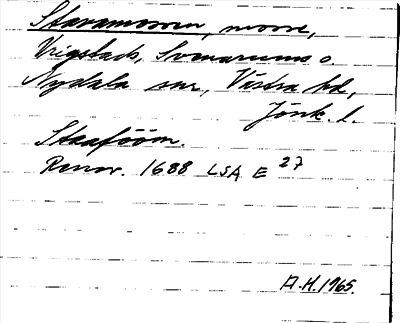 Stavamossen, mosse,
Vrigstads, Svenarums o.
Nydala snr, Västra hd,
Jönk. l.
Staafööm.
Renov. 1688 LSA E 27
A.H. 1965.